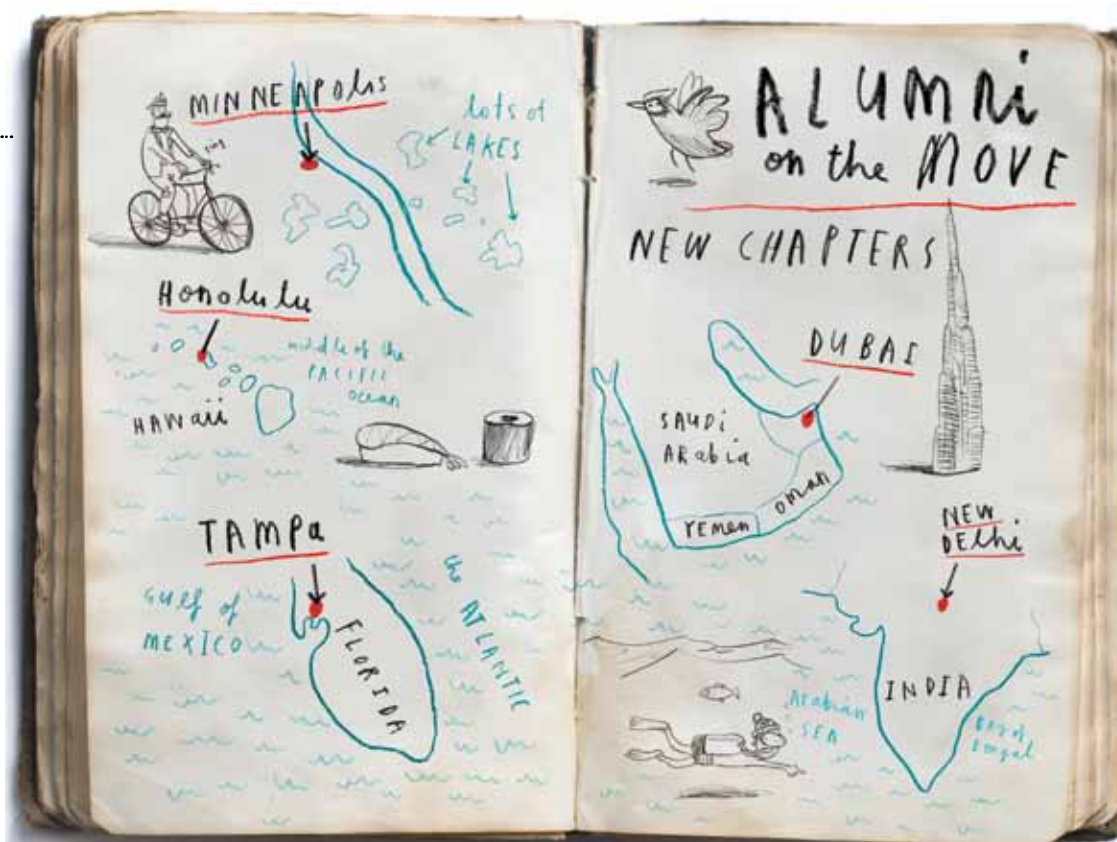 MINNEAPOLIS
ring
lots of
LAKES
Honolulu
HAWAII
middle of the
PACIFIC
OCEAN
TAMPA
GULF of
MEXICO
FLORIDA
the ATLANTIC
ALUMNI
on the MOVE
NEW CHAPTERS
DUBAI
SAUDI
ARABIA
OMAN
YEMEN
NEW
DELHI
INDIA
Arabian
SEA
BAY of
Bengal